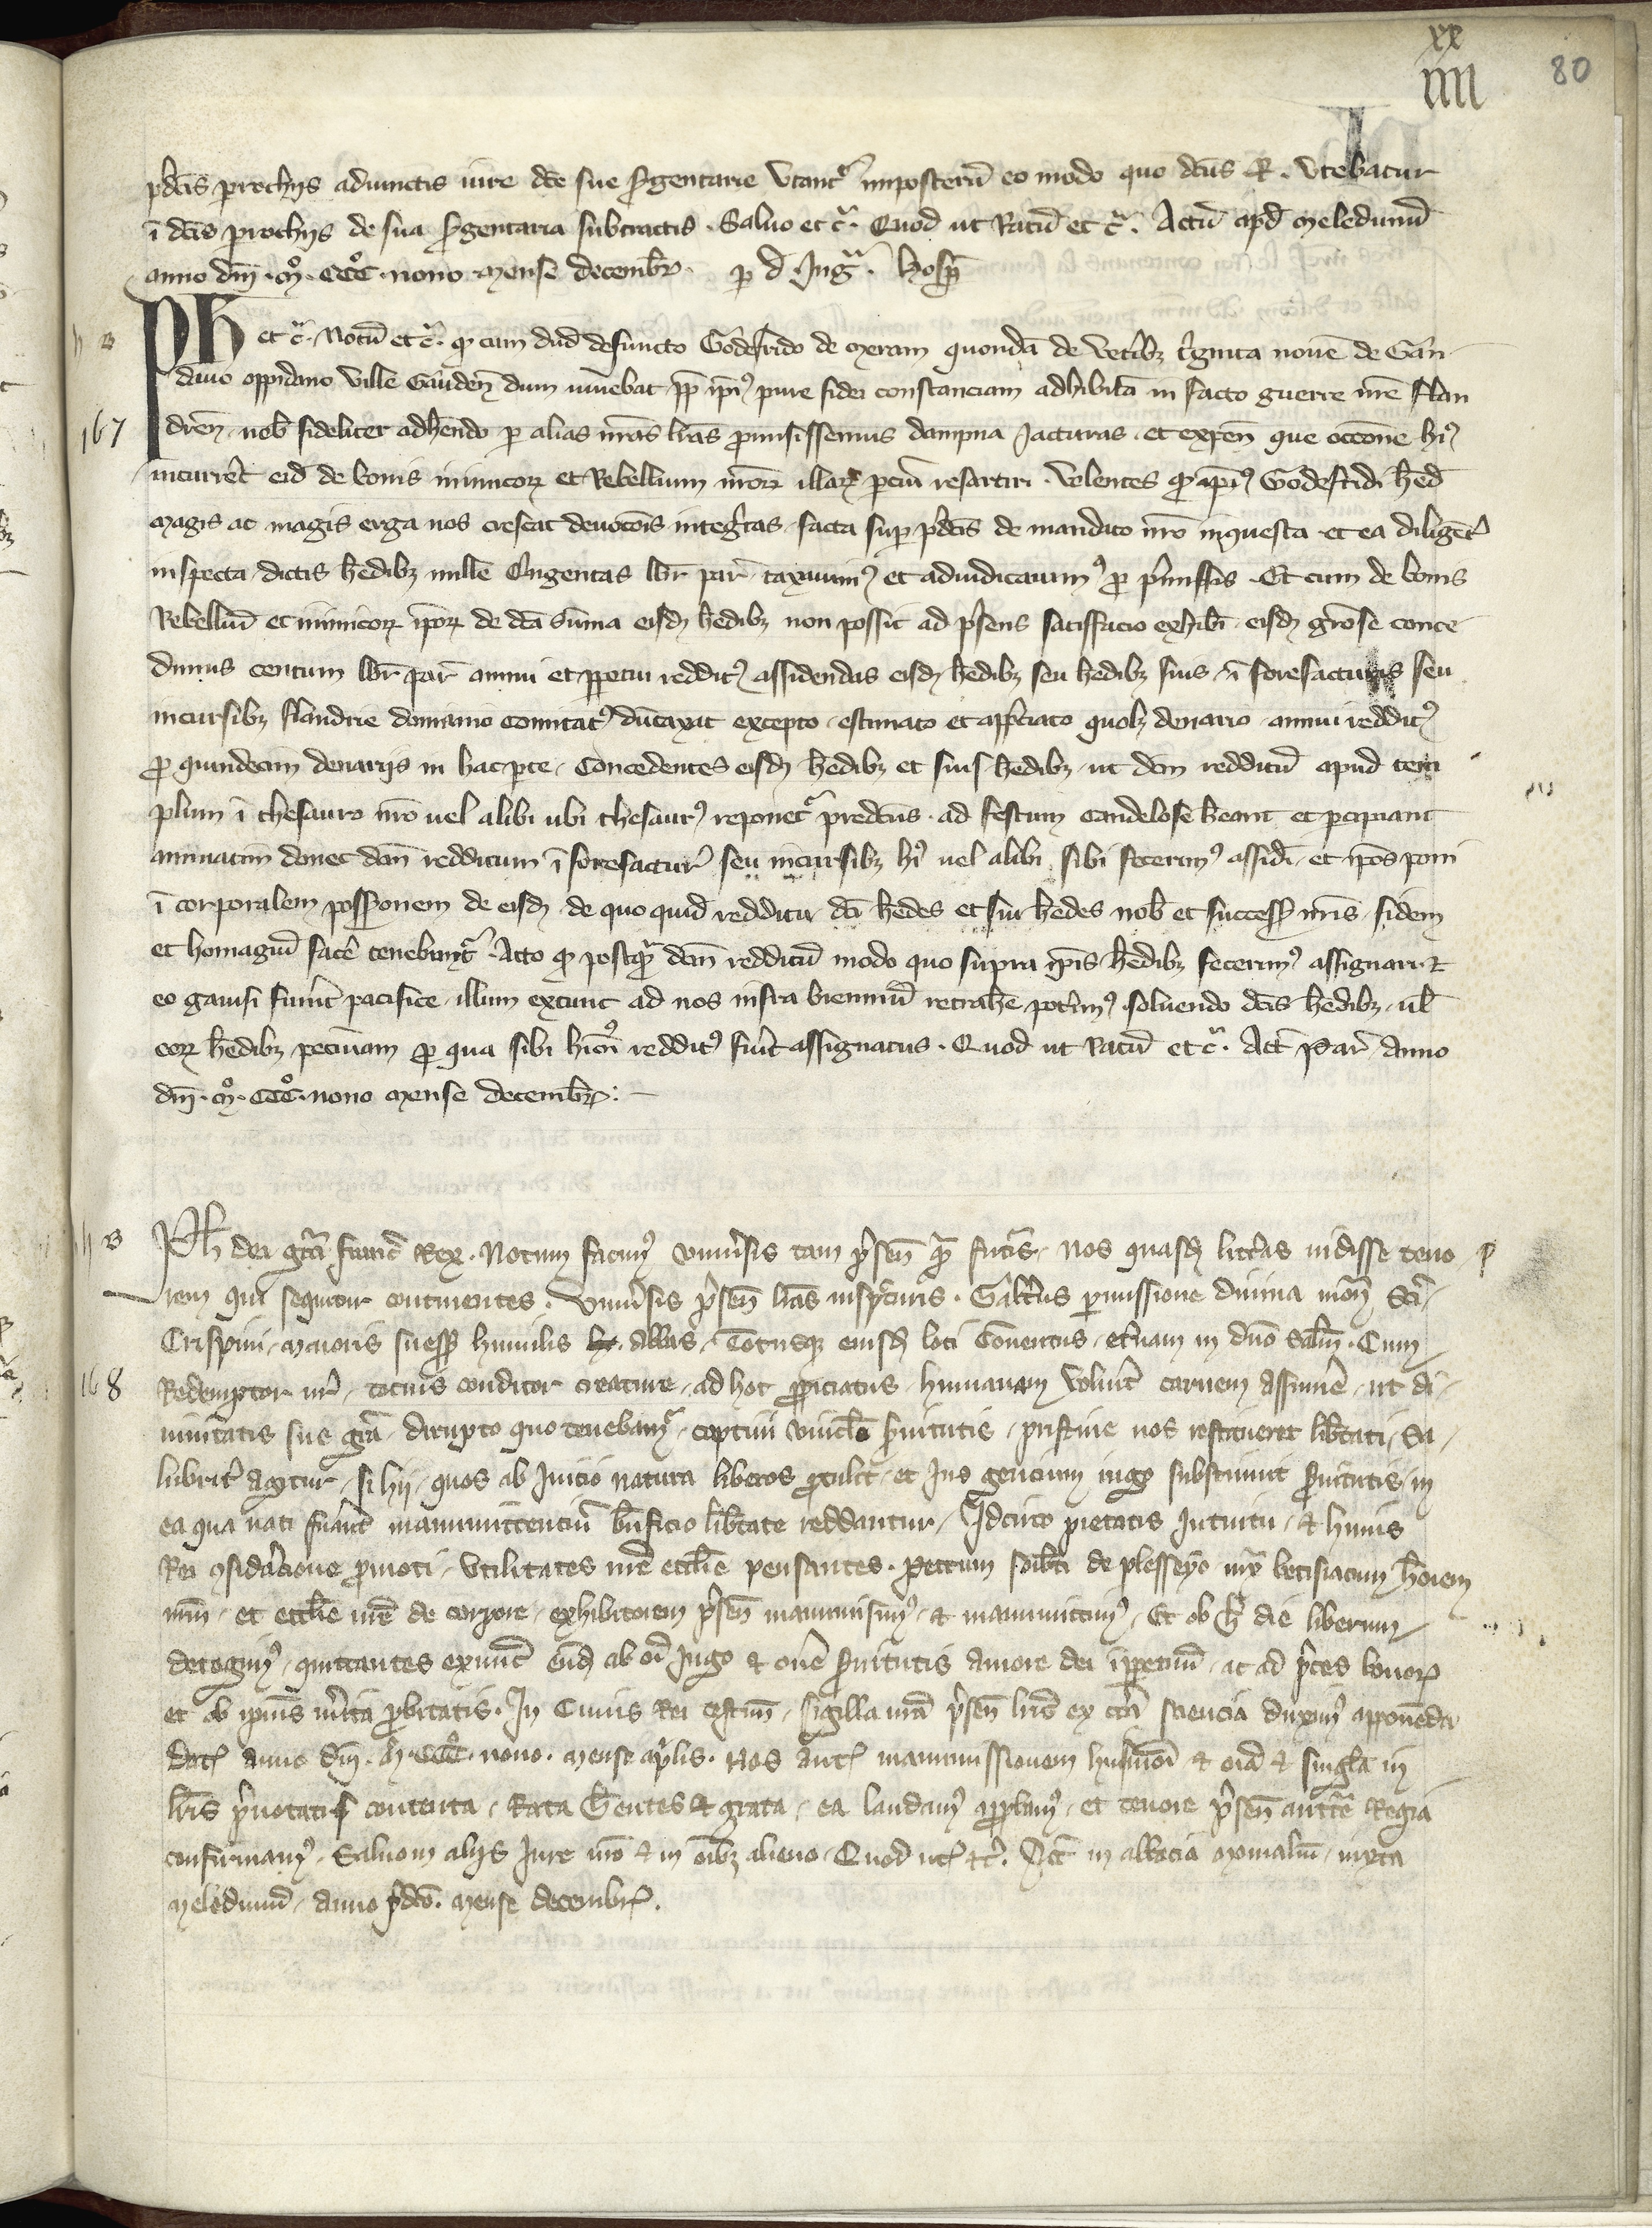 xx
iiii
80
p̄dc̄is prochijs adiunctis iure dc̄e sue s̄gentarie utant᷑ imposterū eo modo quo dc̄us R. utebatur
ī dc̄is prochijs de sua s̄gentaria subtractis. Saluo et c̄. Quod ut Ratū et c̄. Actū apd̄ meledunū
anno dn̄i .mº. cccº. nono mense decembr̄. p d. Ing᷑. hosp̄
Ph et c̄. Notū et c̄. ꝙ cum dud̄ defuncto Godefrido de meram quondā de vet̄ibꝫ t̄ginta nouē de Gan
dauo oppidano ville Gauden̄ dum uiuebat pp̄ ip̄iꝰ pure fidei constanciam adhibitā in facto guerre nr̄e flan
167
dren̄. nob̄ fideliter adh̄endo p alias nr̄as lr̄as promisissemus dampna iacturas et expen̄ que occōne hiꝰ
incurrēt eid̄ de bonis inimicoꝝ et Rebellium nr̄oꝝ illaꝝ parciū resartiri. Volentes ꝙ ip̄iꝰ Godefridi h̄ed̄
magis ac magis erga nos crescat deuoc̄ois inteḡtas facta sup p̄dc̄is de mandato nr̄o inquesta et ea diligēt̄
inspecta dictis h̄edibꝫ mille q̄ngentas libr̄ par̄ taxauimꝰ et adiudicauimꝰ pro p̄missis. Et cum de bonis
Rebelliū et inimicoꝝ ip̄oꝝ de dc̄a sūma eisdꝫ h̄edibꝫ non possit ad p̄sens satisfactio exhib̄i eisdꝫ grōse conce
dimus centum libr̄ par̄ annui et ppetui redditꝰ assidendas eisdꝫ h̄edibꝫ seu h̄edibꝫ suis ī forefacturis seu
incursibꝫ flandrie domanio comitatꝰ dūtaxat excepto estimato et app̄ciato quolꝫ denario annui redditꝰ
pro quindecim denarijs in hac pte. Concedentes eisdꝫ h̄edibꝫ et suis h̄edibꝫ ut dc̄m redditū apud tem
plum ī thesauro nr̄o uel alibi ubi thesaurꝰ reponet᷑ predc̄us ad festum candelose h̄eant et percipiant
annuatim donec dc̄m redditum ī forefactur̄ seu incursibꝫ hiꝰ uel alibi sibi fecerimꝰ assid̄i et ip̄os poni
ī corporalem poss̄ionem de eisdꝫ de quo quid̄ redditu dc̄i h̄edes et sui h̄edes nob̄ et success̄ nr̄is fidem
et homagiū fac̄e tenebunt᷑. Acto ꝙ postq̄ dc̄m redditū modo quo supra ip̄is h̄edibꝫ fecerimꝰ assignari et
eo gauisi fuerīt pacifice illum extunc ad nos infra bienniū retrah̄e pot̄imꝰ soluendo dc̄is h̄edibꝫ ul̄
eoꝝ h̄edibꝫ pecuniam pro qua sibi hiꝰmōi redditꝰ fuit assignatus. Quod ut Ratū et c̄. Act̄ par̄ anno
dn̄i .mº. cccº. nono mense decembr̄.
Ph dei gr̄a franc̄ Rex. Notum facimꝰ uniu̅sis tam p̄sen̄ q̄ futuris. Nos quasdꝫ litt̄as uidisse teno
rem qui sequitur continentes. Uniu̅sis p̄sen̄ lr̄as insp̄cturis. Galt̄us permissione diuina mon̄ Sc̄i
Crispini maioris suess̄ humilis abbas, totusqꝫ eiusdꝫ loci conuentus, et̄nam in dn̄o salm̄. Cum
168
Redemptor nr̄, totius conditor creature, ad hoc propiciatus, humanam voluit carnem assumē, ut di
uinitatis sue gr̄a, dirupto quo tenebam᷑ captiui vinclo s̄uitutis, pristine nos restitueret lib̄tati, Sa
lubrit̄ agitur, si hij, quos ab inicio natura liberos protulit, et Ius gencium iugo substituit s̄uitutis, in
ea qua nati fuānt manumittenciū bn̄ficio lib̄tate reddantur. Idcirco pietatis intuitu, et huius
Rei ꝯsidācione promoti, utilitates nr̄e eccl̄ie pensantes. Petrum de plesseyo iux̄ betisiacum hōiem
nr̄m, et eccl̄ie nr̄e de corpore, exhibitorem p̄sen̄ manumisimꝰ, et manumittimꝰ. Et ob h̄ die liberum
detegimꝰ, quittantes exnunc eūdꝫ ab oī Iugo et onē s̄uitutis amore dei īppetuū, ac ad p̄ces bonoꝝ
et ob ipsius m̄ita probitatis. In Cuius Rei testim̄, sigilla nr̄a p̄sen̄ lr̄is ex c̄ta sciencia duximꝰ apponenda
Dat̄ anno dn̄i .mº. cccº. nono. mense ap̄lis. Nos aut̄ manumissionem huiusmōi et om̄ia et singl̄a in
lr̄is p̄notatis contenta, Rata h̄entes et grata, ea laudamꝰ app̄bamꝰ, et tenore p̄sen̄ auct̄te Regia
confirmamꝰ. Saluo in alijs Iure nr̄o et in oībꝫ alieno. Quod ut et c̄. Act̄ in abbacia monialiū, iuxta
meledunū, anno p̄dc̄o. mense decembr̄.